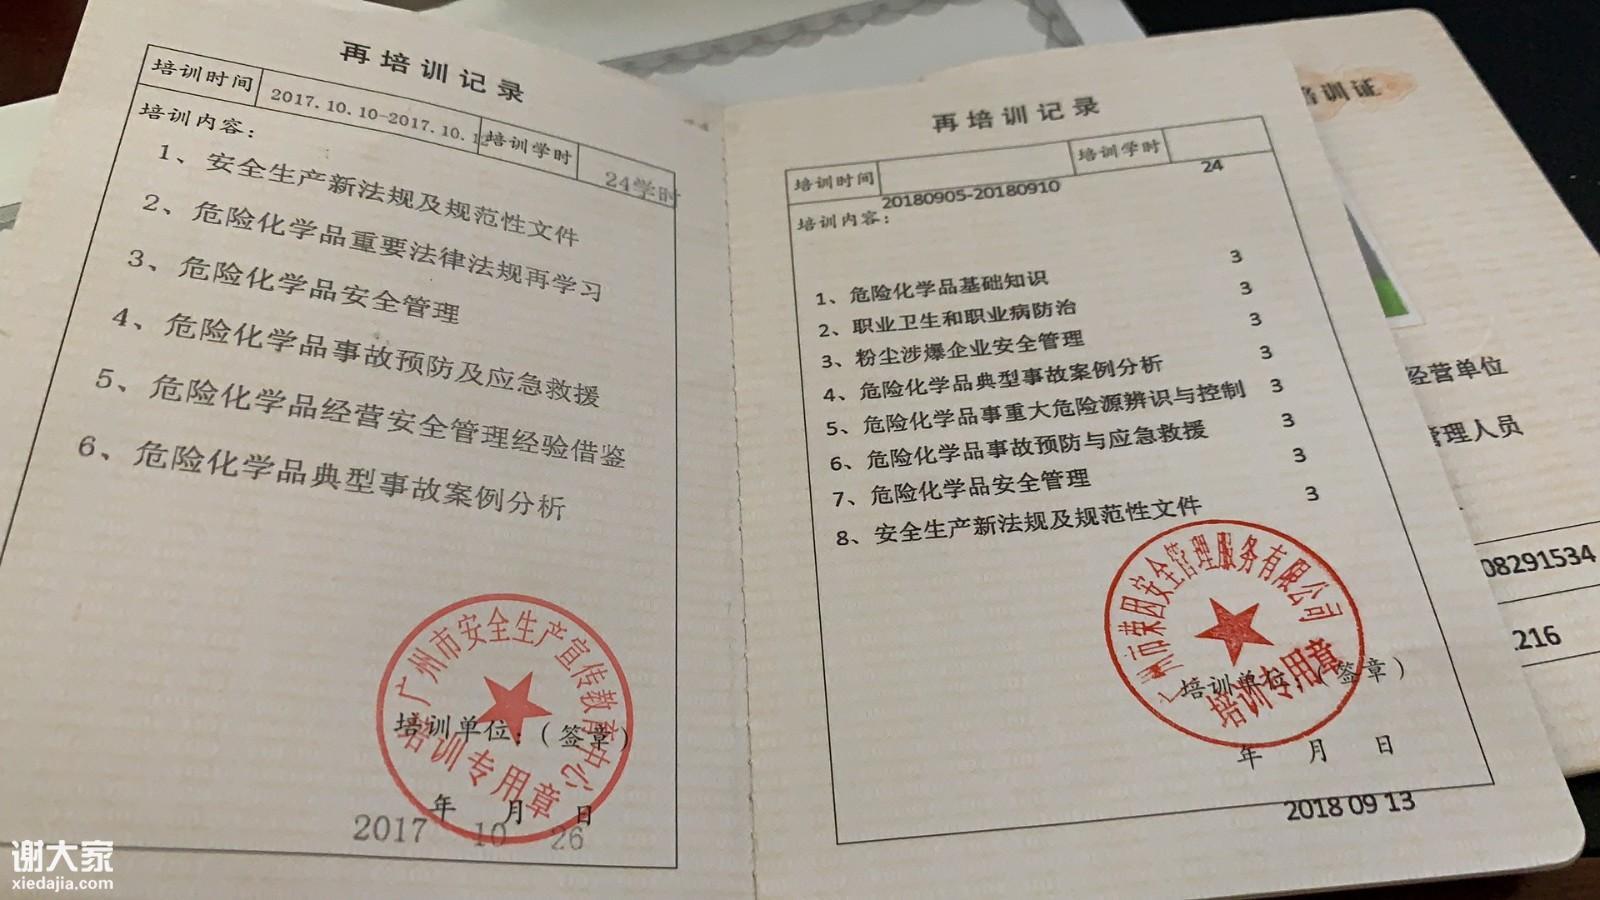 再培训记录
培训时间 2017.10.10-2017.10.12 培训学时 24学时
培训内容:
1、安全生产新法规及规范性文件
2、危险化学品重要法律法规再学习
3、危险化学品安全管理
4、危险化学品事故预防及应急救援
5、危险化学品经营安全管理经验借鉴
6、危险化学品典型事故案例分析
广州市安全生产宣传教育中心
培训单位:(签章)
培训专用章
年 月 日
2017 10 26
再培训记录
培训时间 20180905-20180910 培训学时 24
培训内容:
1、危险化学品基础知识 3
2、职业卫生和职业病防治 3
3、粉尘涉爆企业安全管理 3
4、危险化学品典型事故案例分析 3
5、危险化学品事重大危险源辨识与控制 3
6、危险化学品事故预防与应急救援 3
7、危险化学品安全管理 3
8、安全生产新法规及规范性文件 3
广州市荣因安全管理服务有限公司
培训单位:(签章)
培训专用章
年 月 日
2018 09 13
培训证
经营单位
管理人员
08291534
216
谢大家
xiedajia.com